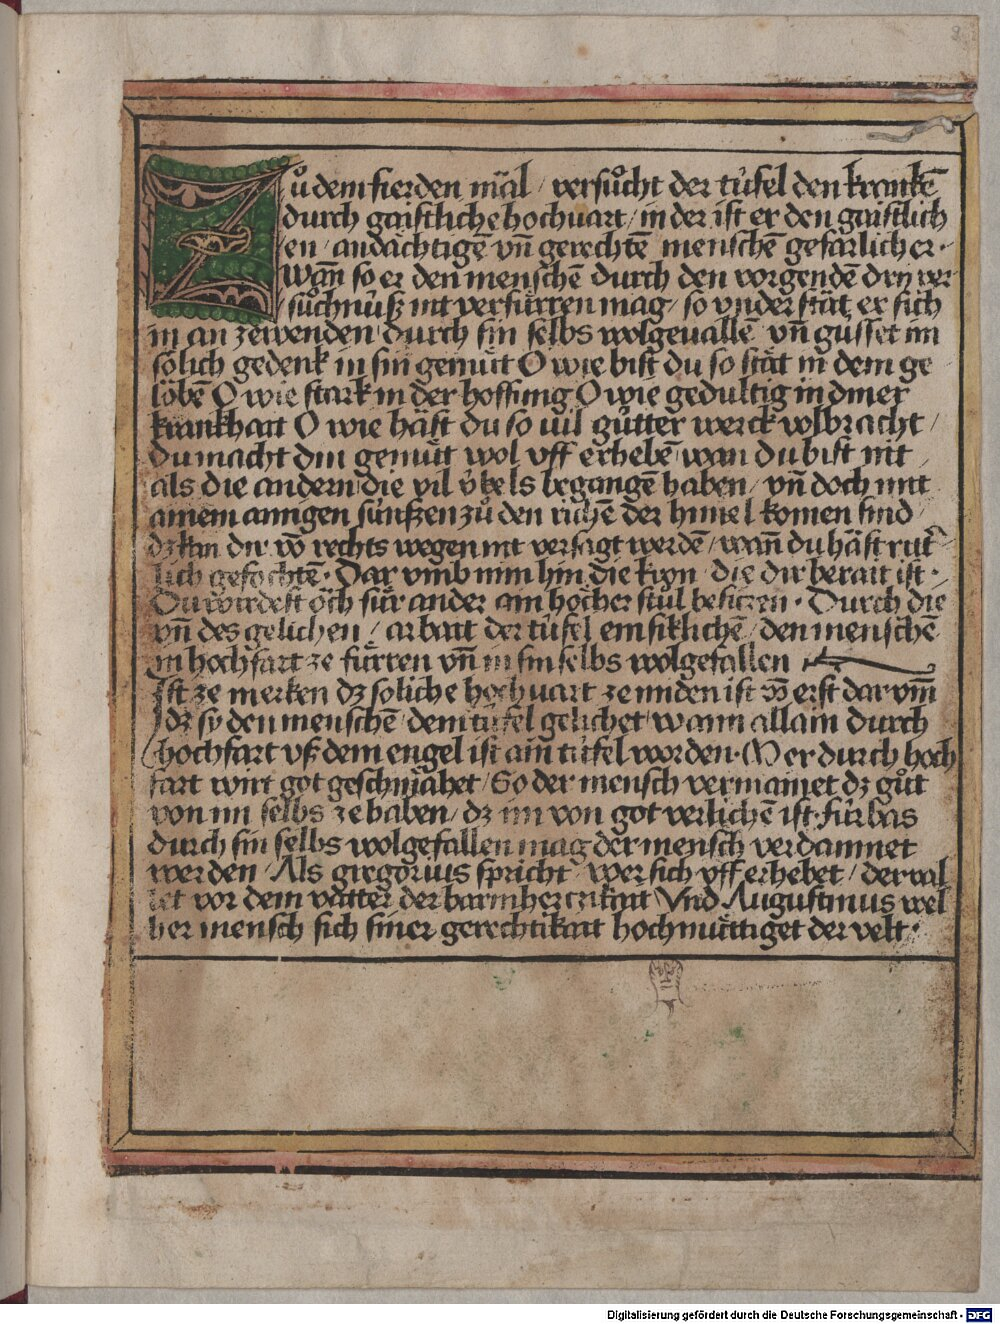 Zů dem fierden mäl / versůcht der tüfel den krankē
durch gaistliche hochuart / in der ist er den gaistlich
en / andächtigē vn̄ gerechtē menschē gefärlicher ·
Wan̄ so er den menschē durch den vorgendē dry ver
sůchnüß nit verfürren mag / so vnder stät er sich
in an zewenden durch sin selbs wolgeuallē vn̄ gusset im
sölich gedenk in sin gemüt O wie bist du so stät in dem ge
löbē O wie stark in der hoffnng O wie gedultig in diner
krankhait O wie häst du so uil gůtter werck volbracht /
du macht din gemüt wol vff erhebē wan du bist nit /
als die andern die vil v̈bels begangē haben / vn̄ doch mit
ainem ainigen sünfzen zů den richē der himel komen sind /
dz kan dir vō rechts wegen nit versagt werdē / wan̄ du häst rut
lich gefochtē · Dar vmb nim hin die kron / die dir berait ist ·
Du wirdest öch für ander ain höcher stůl besitzen · Durch die
vn̄ des gelichen / arbait der tüfel emsiklichē / den menschē
in hochfart ze fürren vn̄ in sin selbs wolgefallen
Ist ze merken dz soliche hochuart ze miden ist vō erst dar vm̄
dz sy den menschē dem tüfel gelichet wann allain durch
hochfart vß dem engel ist ain tüfel worden · Wer durch hoch
fart wirt got geschmähet / So der mensch vermainet dz gůt
von im selbs ze haben / dz im von got verlichē ist fürbas
durch sin selbs wolgefallen mag der mensch verdamnet
werden / Als gregorius spricht / wer sich vff erhebet / der val
let vor dem vätter der barmherczikait / Vnd Augustinus wel
her mensch sich siner gerechtikait hochmüttiget der velt ·
Digitalisierung gefördert durch die Deutsche Forschungsgemeinschaft - DFG